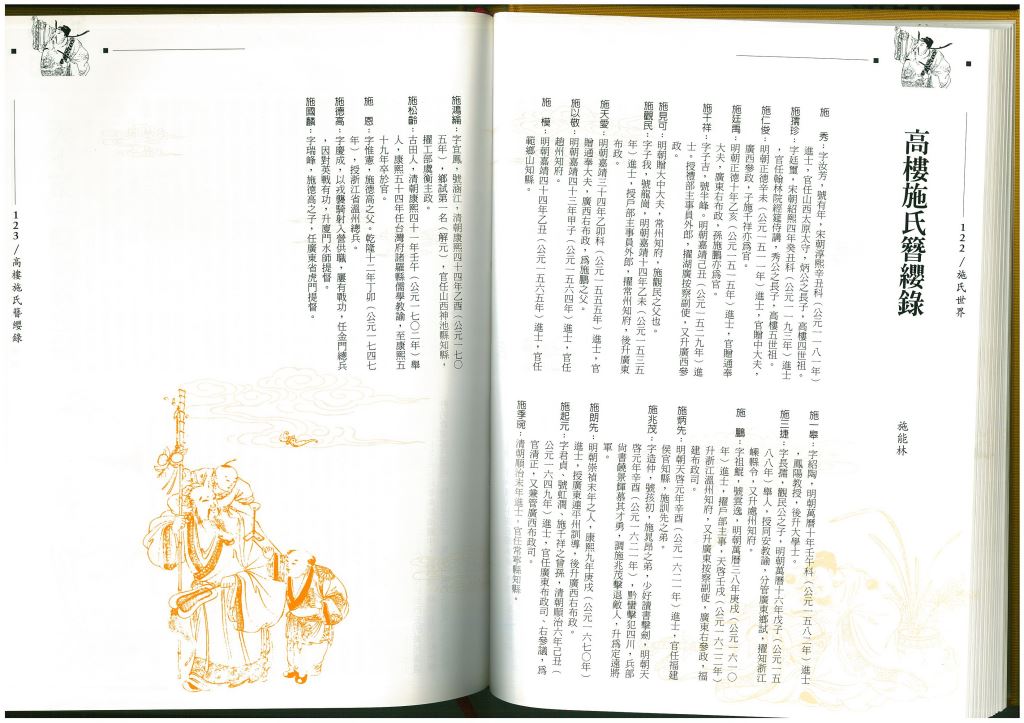 122／施氏世界
高樓施氏簪纓錄
施能林
施　秀：字汝芳，號有年，宋朝淳熙辛丑科（公元一一八一年）
進士，官任山西太原太守，炳公之長子，高樓四世祖。
施濆珍：字廷璽，宋朝紹熙四年癸丑科（公元一一九三年）進士
，官任翰林院經筵侍講，秀公之長子，高樓五世祖。
施仁俊：明朝正德辛未（公元一五一一年）進士，官贈中大夫，
廣西參政，子施千祥亦爲官。
施廷禹：明朝正德十年乙亥（公元一五一五年）進士，官贈通奉
大夫，廣東右布政，孫施鵬亦爲官。
施千祥：字子吉，號半峰。明朝嘉靖己丑（公元一五二九年）進
士。授禮部主事員外郎，擢湖廣按察副使，又升廣西參
政。
施見可：明朝贈大中大夫，常州知府，施觀民之父也。
施觀民：字子我，號龍崗，明朝嘉靖十四年乙未（公元一五三五
年）進士，授戶部主事員外郎，擢常州知府，後升廣東
布政。
施天愛：明朝嘉靖三十四年乙卯科（公元一五五五年）進士，官
贈通奉大夫，廣西右布政，爲施鵬之父。
施以敬：明朝嘉靖四十三年甲子（公元一五六四年）進士，官任
趙州知府。
施　模：明朝嘉靖四十四年乙丑（公元一五六五年）進士，官任
範鄉山知縣。
施一皋：字紹陶，明朝萬曆十年壬午科（公元一五八二年）進士
，鳳陽教授，後升大學士。
施三捷：字長孺，觀民公之子，明朝萬曆十六年戊子（公元一五
八八年）舉人，授同安教諭，分管廣東鄉試，擢知浙江
嵊縣令，又升處州知府。
施　鵬：字祖鯤，號雲逸，明朝萬曆三八年庚戌（公元一六一〇
年）進士，擢戶部主事，天啓壬戌（公元一六二二年）
升浙江溫州知府，又升廣東按察副使，廣東右參政，福
建布政司。
施炳先：明朝天啓元年辛酉（公元一六二一年）進士，官任福建
侯官知縣，施訓先之弟。
施兆茂：字造仲，號孩初，施晁昂之弟，少好讀書擊劍，明朝天
啓元年辛酉（公元一六二一年），黔蠻擊犯四川，兵部
尚書饒景輝慕其才勇，調施兆茂擊退敵人，升爲定遠將
軍。
施朗先：明朝崇禎末年之人，康熙九年庚戌（公元一六七〇年）
進士，授廣東連平州訓導，後升廣西右布政。
施起元：字君貞、號虹澗、施千祥之曾孫，清朝順治六年己丑（
公元一六四九年）進士，官任廣東布政司、右參議，爲
官清正，又兼管廣西布政司。
施季琬：清朝順治末年進士，官任常寧縣知縣。
施鴻綸：字宜鳳，號涵江，清朝康熙四十四年乙酉（公元一七〇
五年），鄉試第一名（解元），官任山西神池縣知縣，
擢工部虞衡主政。
施松齡：古田人，清朝康熙四十一年壬午（公元一七〇二年）舉
人，康熙五十四年任台灣府諸羅縣儒學教諭，至康熙五
十九年卒於官。
施　恩：字惟憲，施德高之父。乾隆十二年丁卯（公元一七四七
年），授浙江省溫州總兵。
施德高：字慶成，以戎襲騎射入營供職，屢有戰功，任金門總兵
，因對英戰有功，升廈門水師提督。
施國麟：字瑞峰，施德高之子，任廣東省虎門提督。
123／高樓施氏簪纓錄